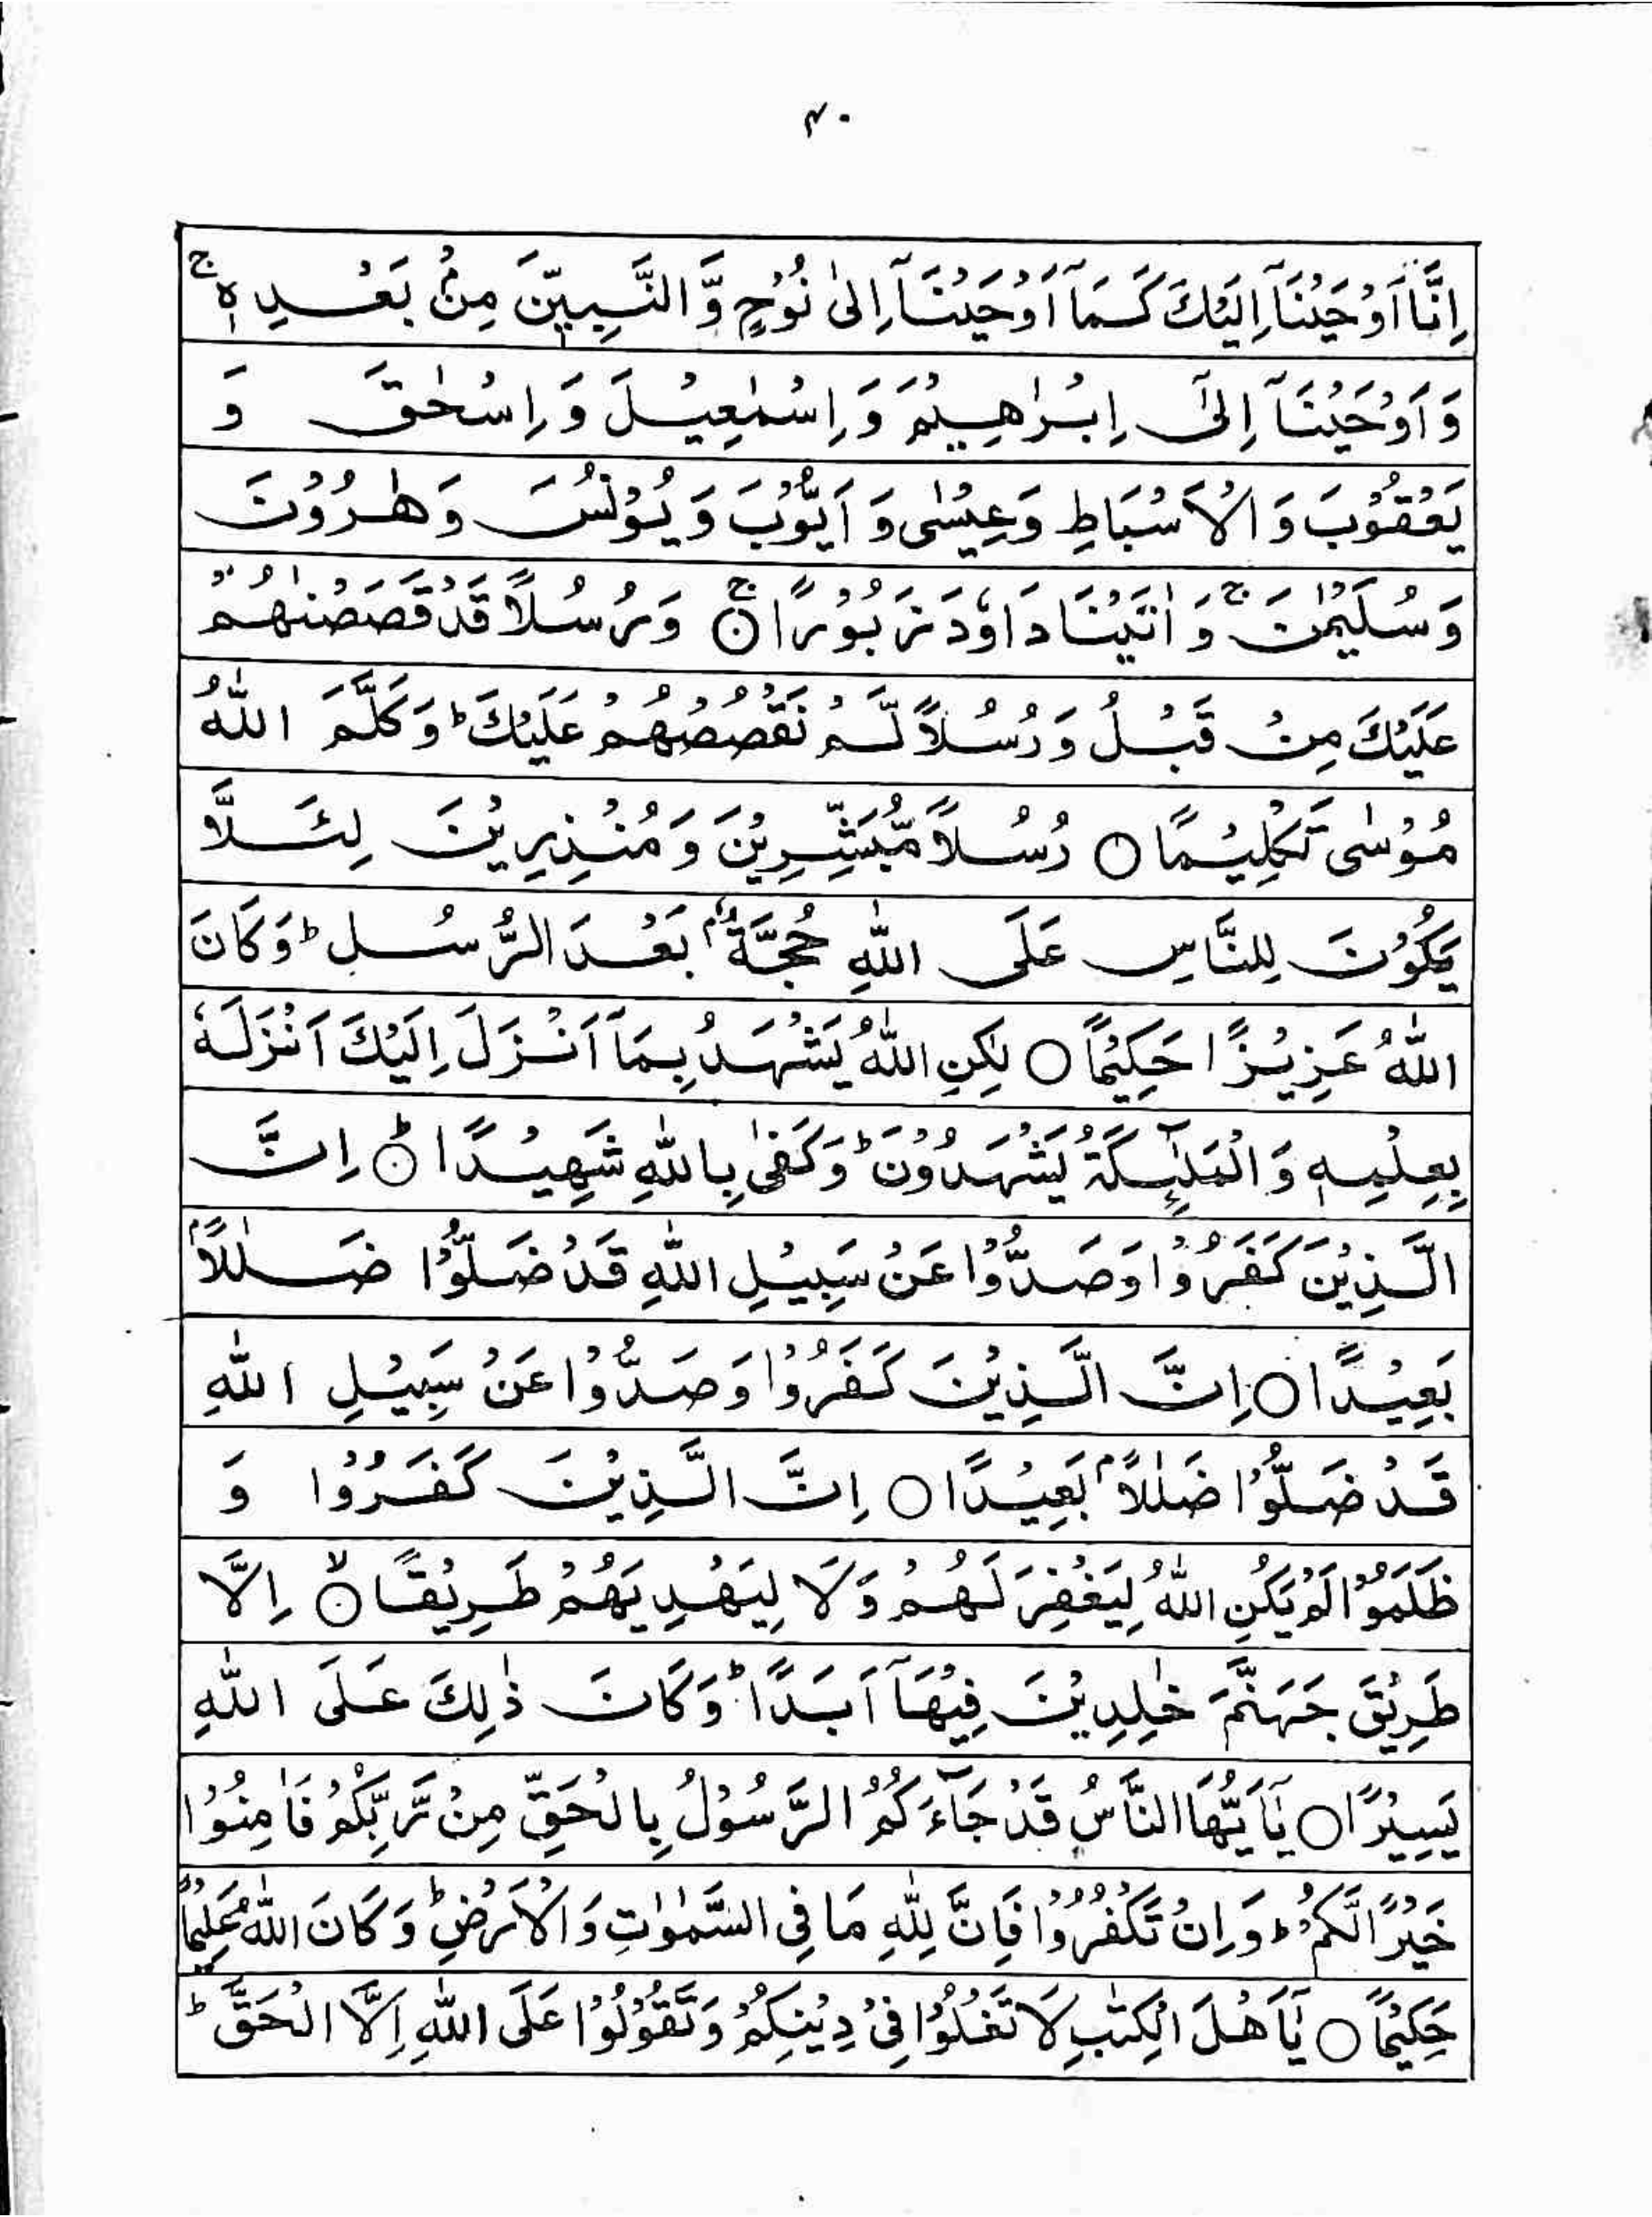 ۴۰
اِنَّآ اَوْحَيْنَآ اِلَيْكَ كَمَآ اَوْحَيْنَآ اِلىٰ نُوْحٍ وَّ النَّبِيّٖنَ مِنْۢ بَعْدِهٖ ۚ
وَ اَوْحَيْنَآ اِلىٰٓ اِبْرٰهِيْمَ وَ اِسْمٰعِيْلَ وَ اِسْحٰقَ وَ
يَعْقُوْبَ وَ الْاَسْبَاطِ وَ عِيْسٰى وَ اَيُّوْبَ وَ يُوْنُسَ وَ هٰرُوْنَ
وَ سُلَيْمٰنَ ۚ وَ اٰتَيْنَا دَاوٗدَ زَبُوْرًا ۚ○ وَ رُسُلًا قَدْ قَصَصْنٰهُمْ
عَلَيْكَ مِنْ قَبْلُ وَ رُسُلًا لَّمْ نَقْصُصْهُمْ عَلَيْكَ ؕ وَ كَلَّمَ اللّٰهُ
مُوْسٰى تَكْلِيْمًا ○ رُسُلًا مُّبَشِّرِيْنَ وَ مُنْذِرِيْنَ لِئَلَّا
يَكُوْنَ لِلنَّاسِ عَلَى اللّٰهِ حُجَّةٌۢ بَعْدَ الرُّسُلِ ؕ وَ كَانَ
اللّٰهُ عَزِيْزًا حَكِيْمًا ○ لٰكِنِ اللّٰهُ يَشْهَدُ بِمَآ اَنْزَلَ اِلَيْكَ اَنْزَلَهٗ
بِعِلْمِهٖ وَ الْمَلٰٓئِكَةُ يَشْهَدُوْنَ ؕ وَ كَفٰى بِاللّٰهِ شَهِيْدًا ؕ○ اِنَّ
الَّذِيْنَ كَفَرُوْا وَ صَدُّوْا عَنْ سَبِيْلِ اللّٰهِ قَدْ ضَلُّوْا ضَلٰلًاۢ
بَعِيْدًا ○ اِنَّ الَّذِيْنَ كَفَرُوْا وَ صَدُّوْا عَنْ سَبِيْلِ اللّٰهِ
قَدْ ضَلُّوْا ضَلٰلًاۢ بَعِيْدًا ○ اِنَّ الَّذِيْنَ كَفَرُوْا وَ
ظَلَمُوْا لَمْ يَكُنِ اللّٰهُ لِيَغْفِرَ لَهُمْ وَ لَا لِيَهْدِيَهُمْ طَرِيْقًا ۙ○ اِلَّا
طَرِيْقَ جَهَنَّمَ خٰلِدِيْنَ فِيْهَآ اَبَدًا ؕ وَ كَانَ ذٰلِكَ عَلَى اللّٰهِ
يَسِيْرًا ○ يٰٓاَيُّهَا النَّاسُ قَدْ جَآءَكُمُ الرَّسُوْلُ بِالْحَقِّ مِنْ رَّبِّكُمْ فَاٰمِنُوْا
خَيْرًا لَّكُمْ ؕ وَ اِنْ تَكْفُرُوْا فَاِنَّ لِلّٰهِ مَا فِى السَّمٰوٰتِ وَ الْاَرْضِ ؕ وَ كَانَ اللّٰهُ عَلِيْمًا
حَكِيْمًا ○ يٰٓاَهْلَ الْكِتٰبِ لَا تَغْلُوْا فِىْ دِيْنِكُمْ وَ تَقُوْلُوْا عَلَى اللّٰهِ اِلَّا الْحَقَّ ؕ